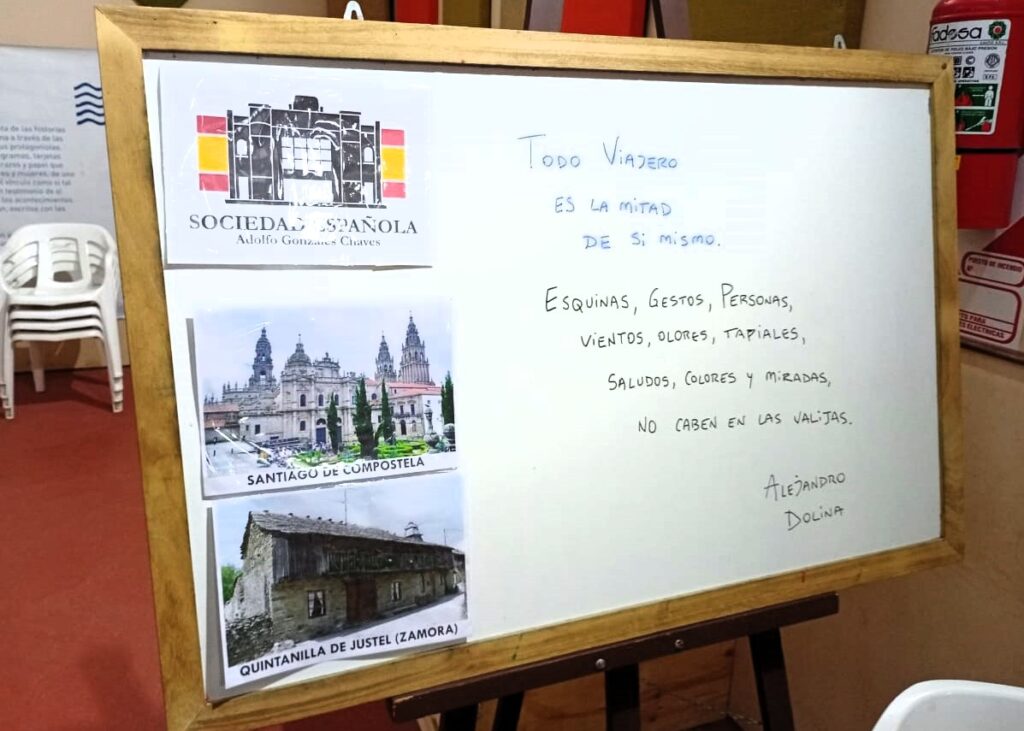 SOCIEDAD ESPAÑOLA
Adolfo Gonzales Chaves
SANTIAGO DE COMPOSTELA
QUINTANILLA DE JUSTEL (ZAMORA)
TODO VIAJERO
ES LA MITAD
DE SI MISMO.
ESQUINAS, GESTOS, PERSONAS,
VIENTOS, OLORES, TAPIALES,
SALUDOS, COLORES Y MIRADAS,
NO CABEN EN LAS VALIJAS.
ALEJANDRO
DOLINA
de las historias
a través de las
protagonistas.
tarjetas
y papel que
y mujeres, de uno
vínculo como si tal
testimonio de el
los acontecimientos.
escritos con las
PUESTO DE INCENDIO
PARA
ELECTRICAS